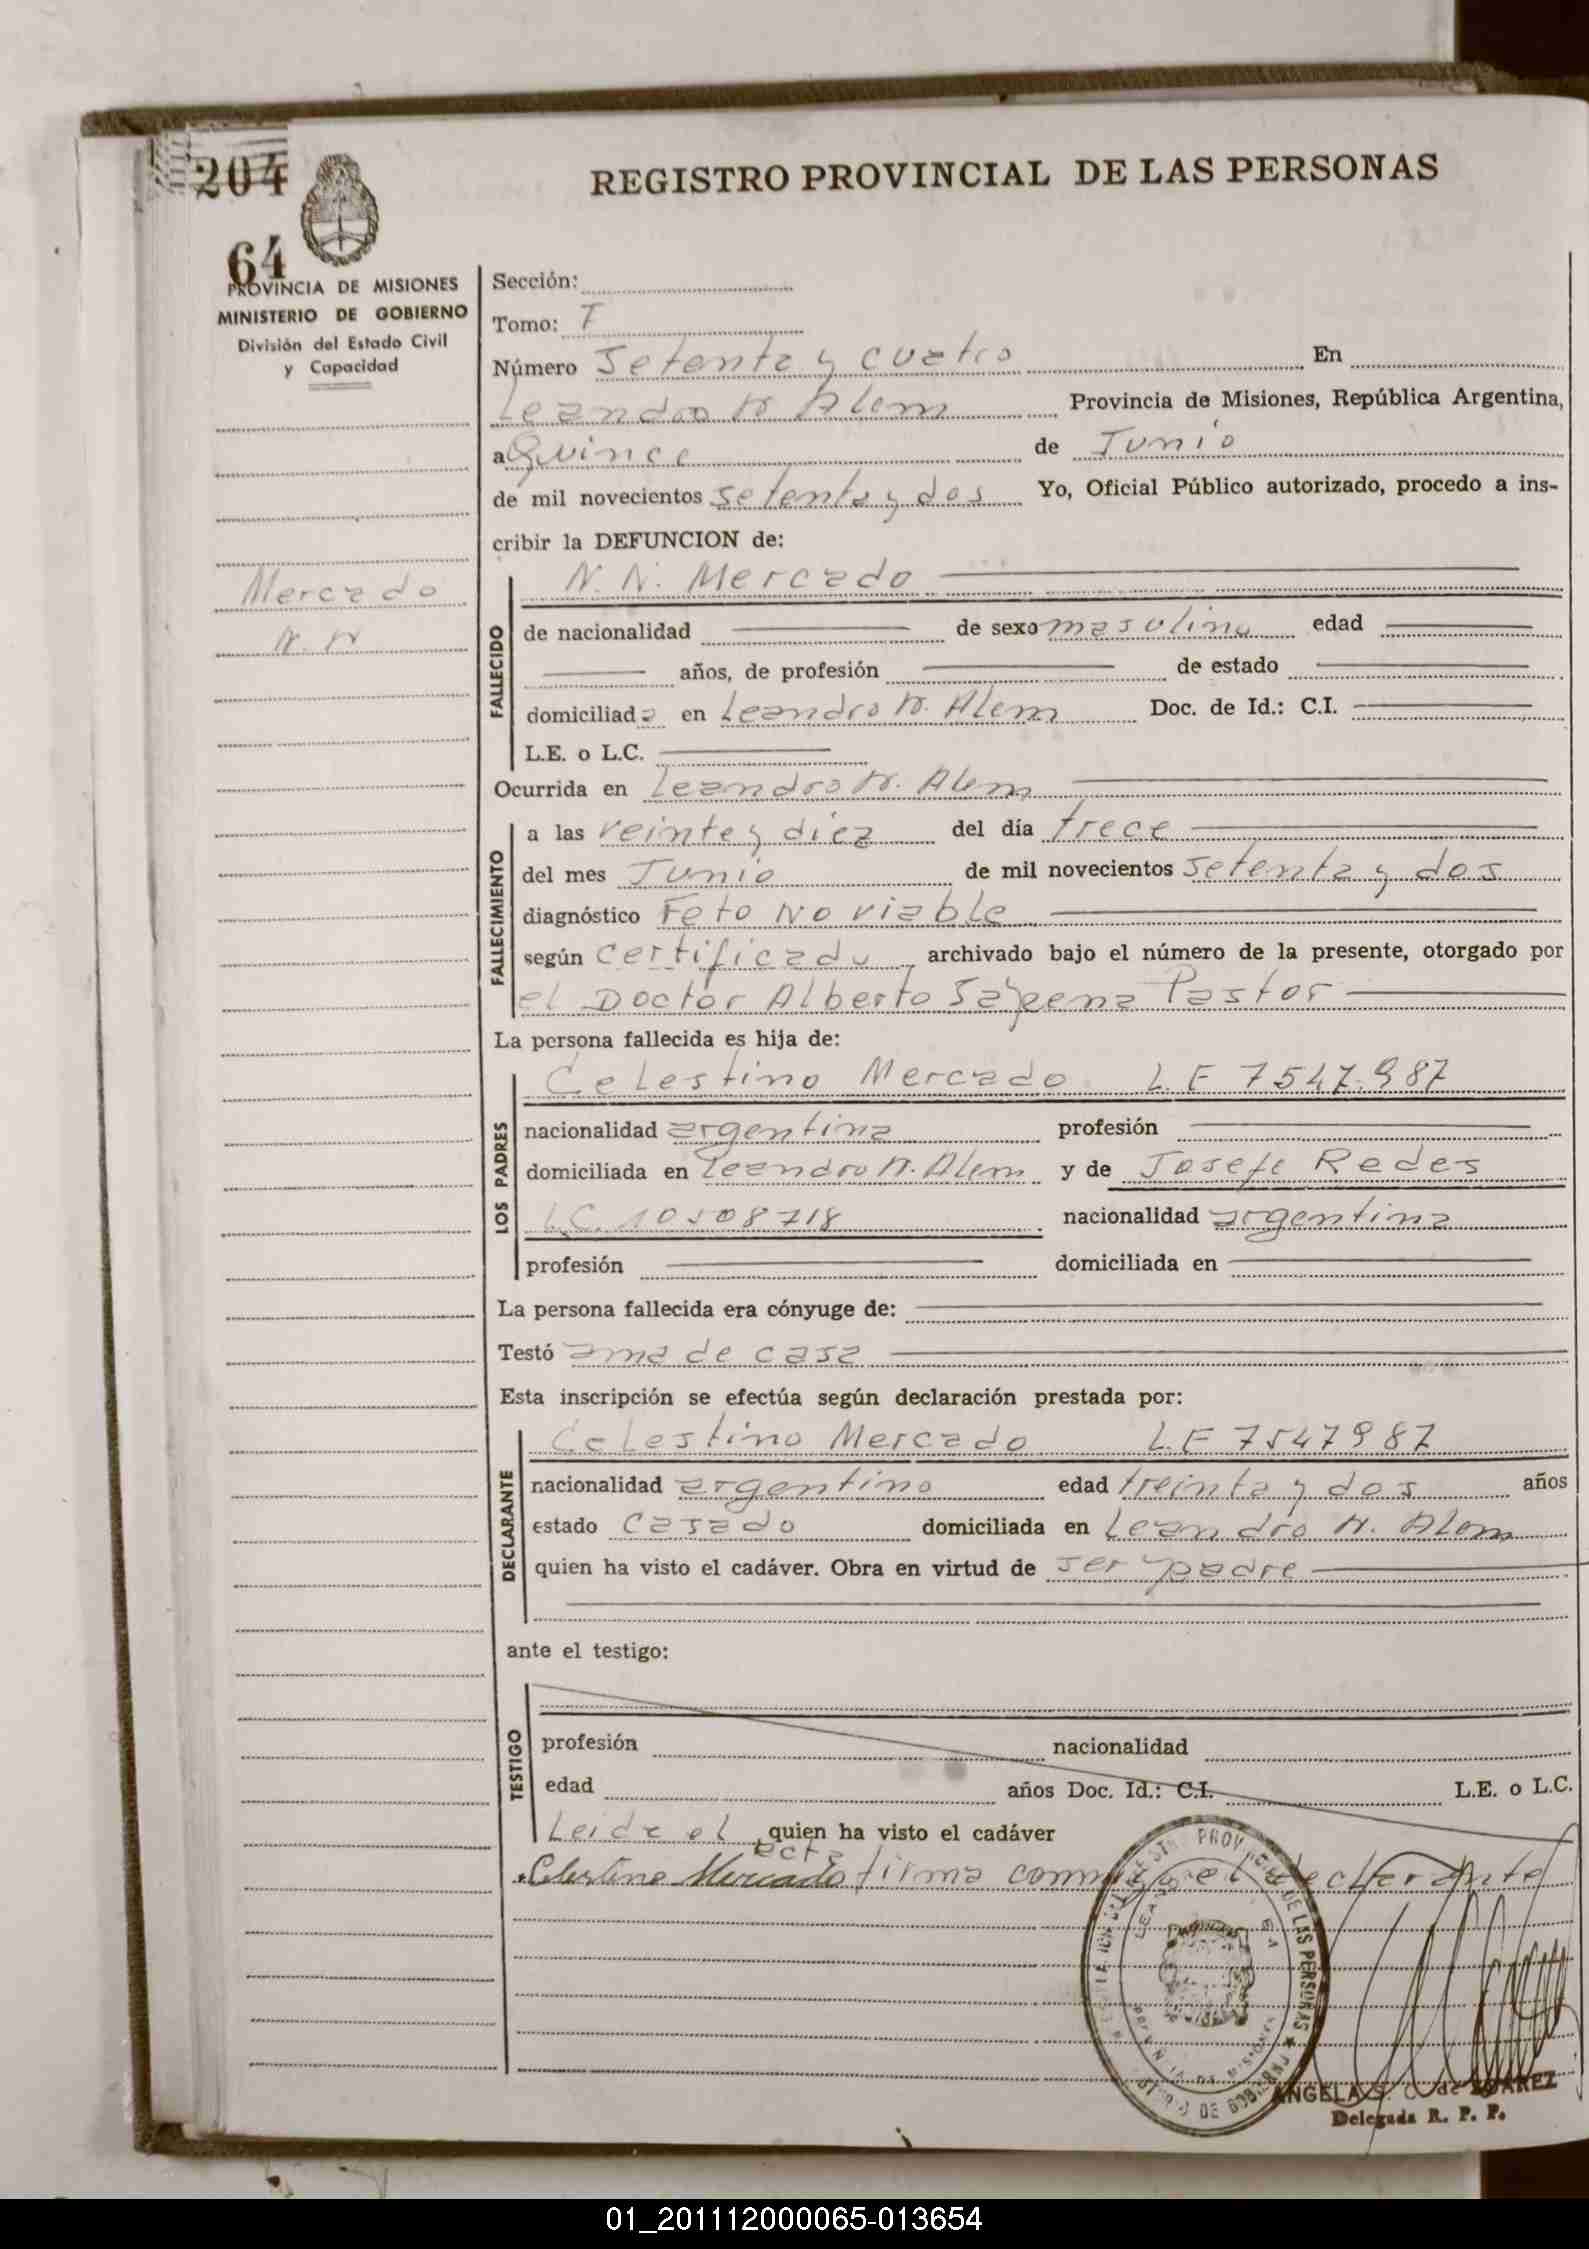 204
64
REGISTRO PROVINCIAL DE LAS PERSONAS
PROVINCIA DE MISIONES
MINISTERIO DE GOBIERNO
División del Estado Civil
y Capacidad
Mercado
N.N
Sección:
Tomo: I
Número Setenta y cuatro En
Leandro N Alem Provincia de Misiones, República Argentina,
a Quince de Junio
de mil novecientos setenta y dos Yo, Oficial Público autorizado, procedo a ins-
cribir la DEFUNCION de:
FALLECIDO
N. N. Mercado
de nacionalidad de sexo masulino edad
años, de profesión de estado
domiciliada en Leandro N. Alem Doc. de Id.: C.I.
L.E. o L.C.
Ocurrida en Leandro N. Alem
FALLECIMIENTO
a las veinte y diez del día trece
del mes Junio de mil novecientos setenta y dos
diagnóstico Feto No viable
según certificado archivado bajo el número de la presente, otorgado por
el Doctor Alberto Sapena Pastor
La persona fallecida es hija de:
LOS PADRES
Celestino Mercado L.E 7547.987
nacionalidad argentina profesión
domiciliada en Leandro N. Alem y de Josefa Redes
L.C. 10508718 nacionalidad argentina
profesión domiciliada en
La persona fallecida era cónyuge de:
Testó ama de casa
Esta inscripción se efectúa según declaración prestada por:
DECLARANTE
Celestino Mercado L.E 7547987
nacionalidad argentino edad treinta y dos años
estado casado domiciliada en Leandro N. Alem
quien ha visto el cadáver. Obra en virtud de ser padre
ante el testigo:
TESTIGO
profesión nacionalidad
edad años Doc. Id.: C.I. L.E. o L.C.
Leida el acta quien ha visto el cadáver
Celestino Mercado firma conmigo el declarante
DE LAS PERSONAS
ANGELA S. de SUAREZ
Delegada R. P. P.
01_201112000065-013654